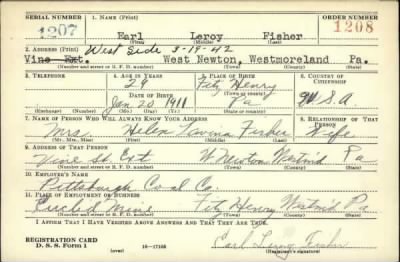 SERIAL NUMBER 1. NAME (Print) ORDER NUMBER
1207 Earl Leroy Fisher 1208
(First) (Middle) (Last)
2. ADDRESS (Print) West Side 3-19-42
Vine Ext. West Newton, Westmoreland Pa.
(Number and street or R. F. D. number) (Town) (County) (State)
3. TELEPHONE 4. AGE IN YEARS 5. PLACE OF BIRTH 6. COUNTRY OF CITIZENSHIP
29 Fitz Henry
DATE OF BIRTH (Town or county)
Jan 20 1911 Pa U.S.A.
(Exchange) (Number) (Mo.) (Day) (Yr.) (State or country)
7. NAME OF PERSON WHO WILL ALWAYS KNOW YOUR ADDRESS 8. RELATIONSHIP OF THAT PERSON
Mrs. Helen Fisher Wife
(Mr., Mrs., Miss) (First) (Middle) (Last)
9. ADDRESS OF THAT PERSON
Vine St. Ext W. Newton Westm'd Pa
(Number and street or R. F. D. number) (Town) (County) (State)
10. EMPLOYER'S NAME
Pittsburgh Coal Co.
11. PLACE OF EMPLOYMENT OR BUSINESS
Mine Fitz Henry Westm'd Pa
(Number and street or R. F. D. number) (Town) (County) (State)
I AFFIRM THAT I HAVE VERIFIED ABOVE ANSWERS AND THAT THEY ARE TRUE.
REGISTRATION CARD
D. S. S. Form 1 (over) 16-17105 Earl Leroy Fisher
(Registrant's signature)